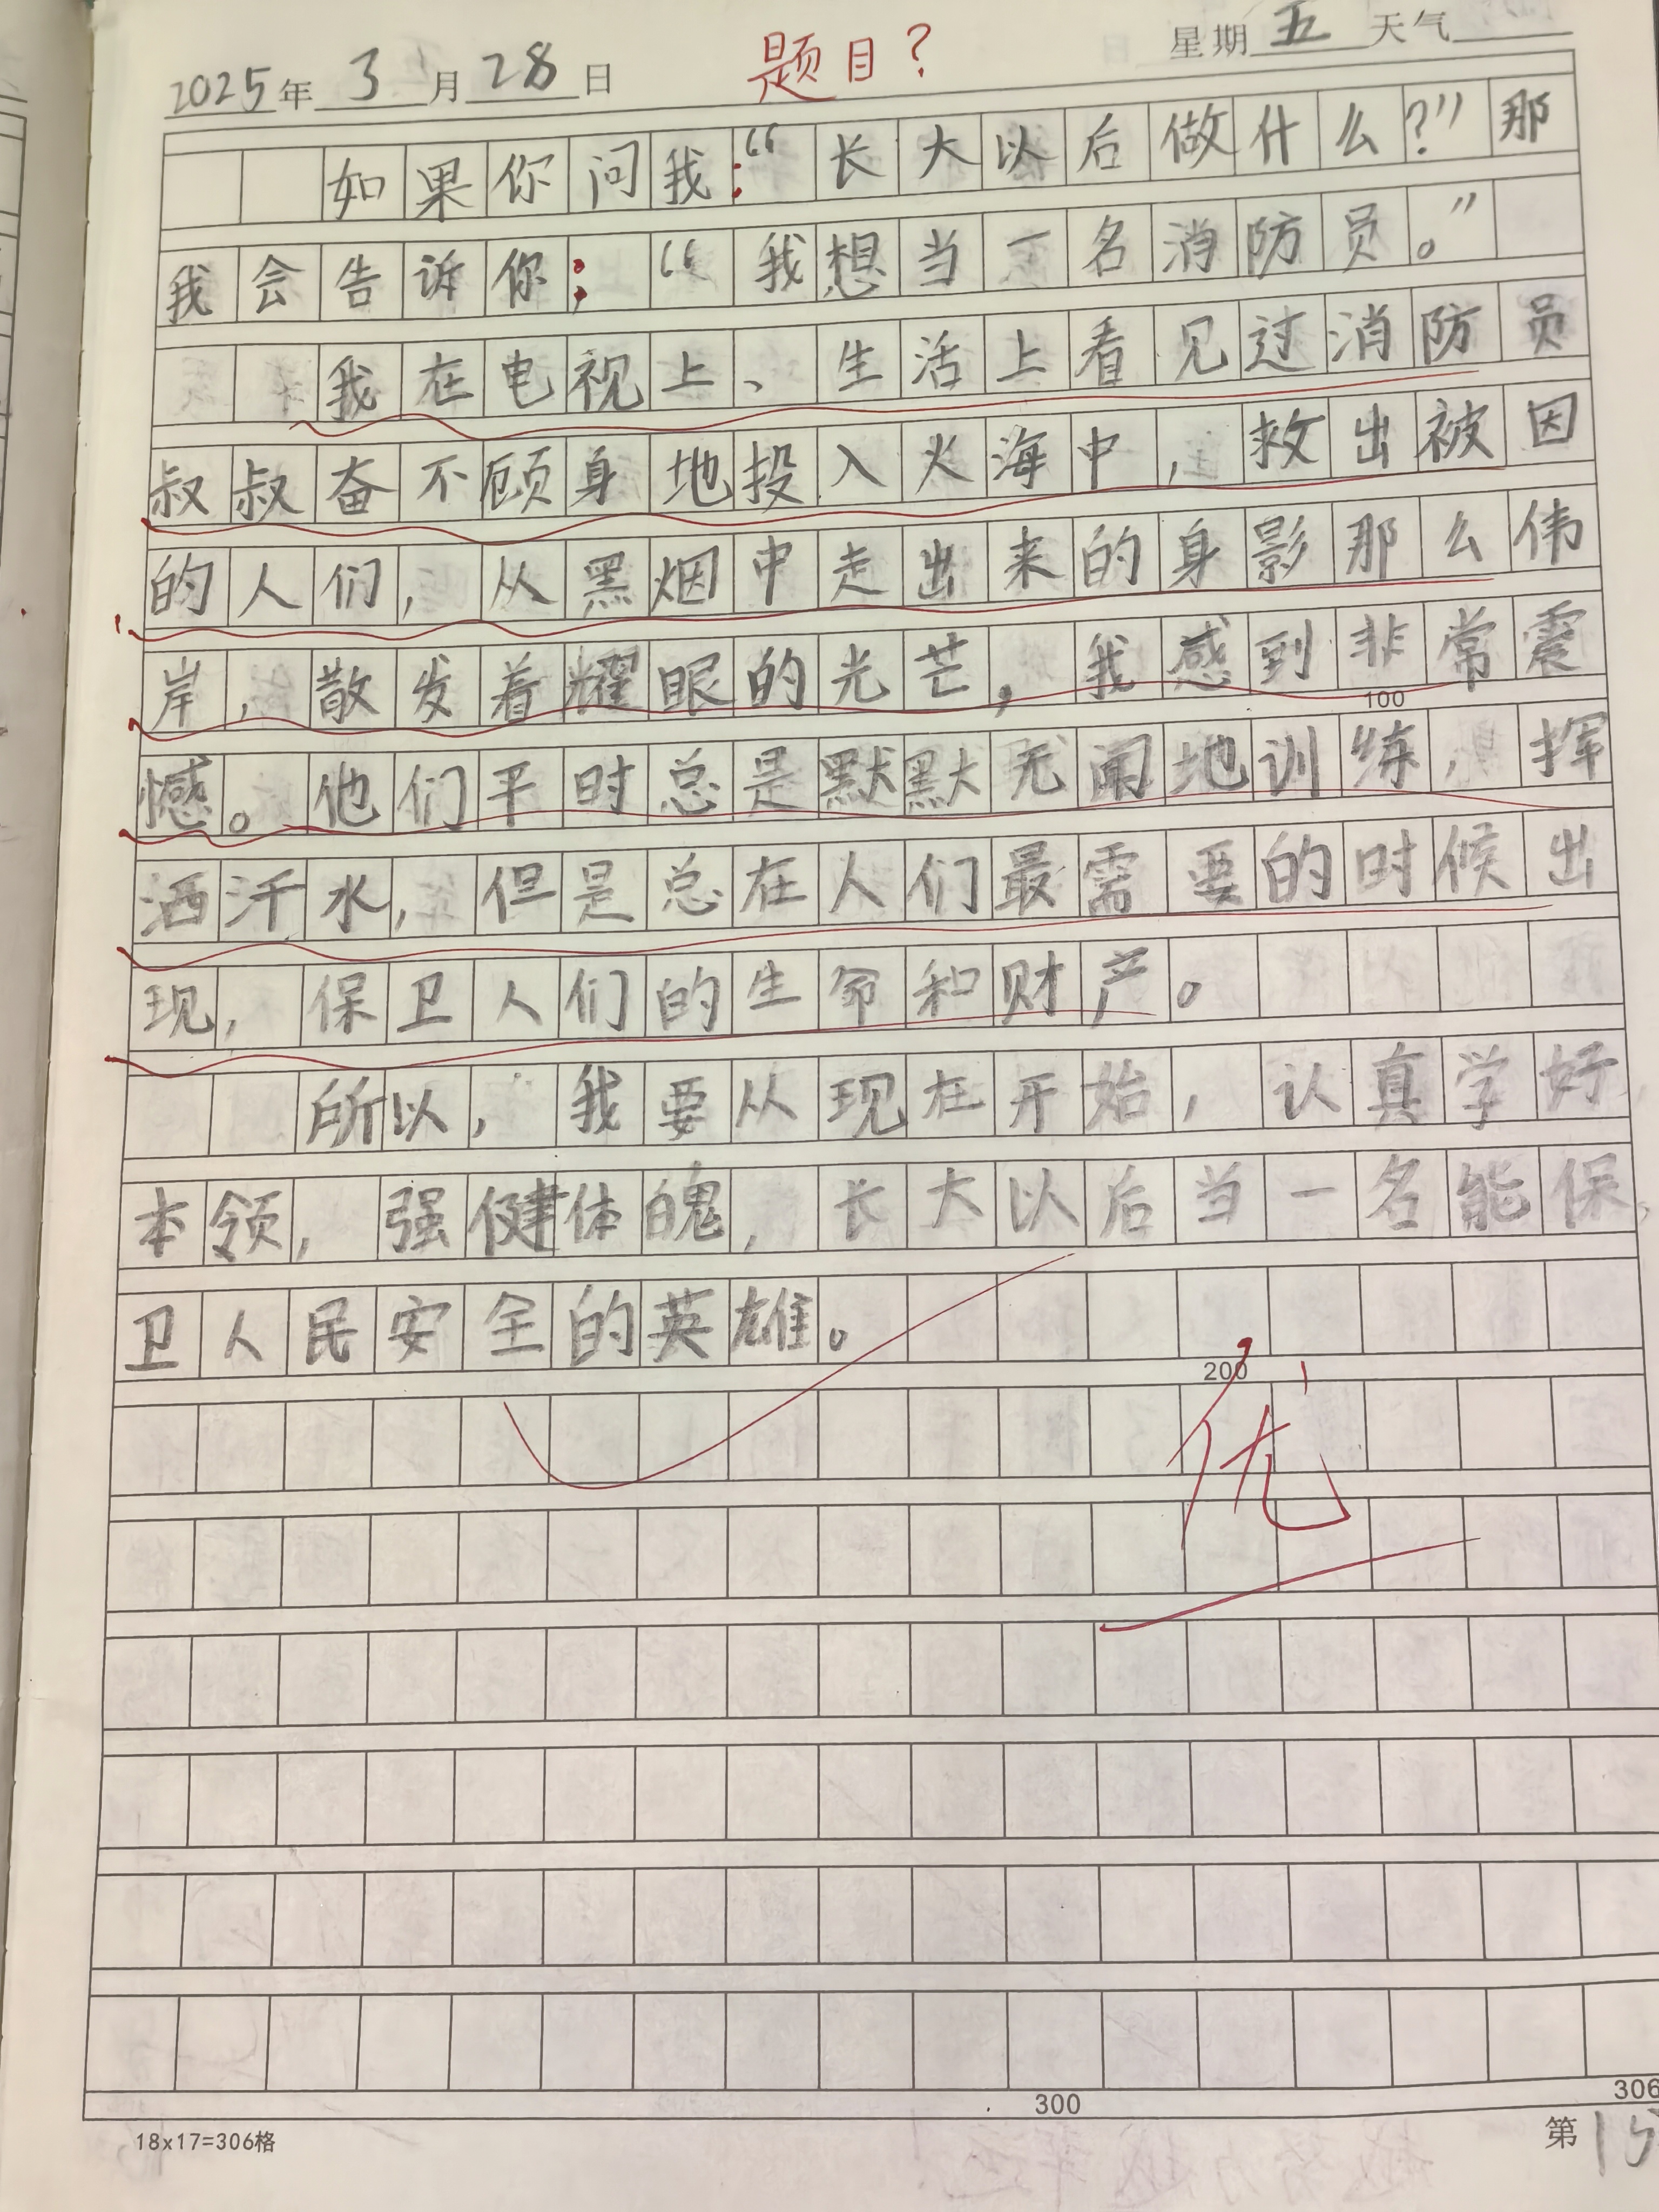 2025年3月28日 题目? 星期五天气
如果你问我:“长大以后做什么?”那
我会告诉你:“我想当一名消防员。”
我在电视上、生活上看见过消防员
叔叔奋不顾身地投入火海中,救出被因
的人们,从黑烟中走出来的身影那么伟
岸,散发着耀眼的光芒,我感到非常震
憾。他们平时总是默默无闻地训练,挥
洒汗水,但是总在人们最需要的时候出
现,保卫人们的生命和财产。
所以,我要从现在开始,认真学好
本领,强健体魄,长大以后当一名能保
卫人民安全的英雄。
优
100
200
300
306
18x17=306格
第15